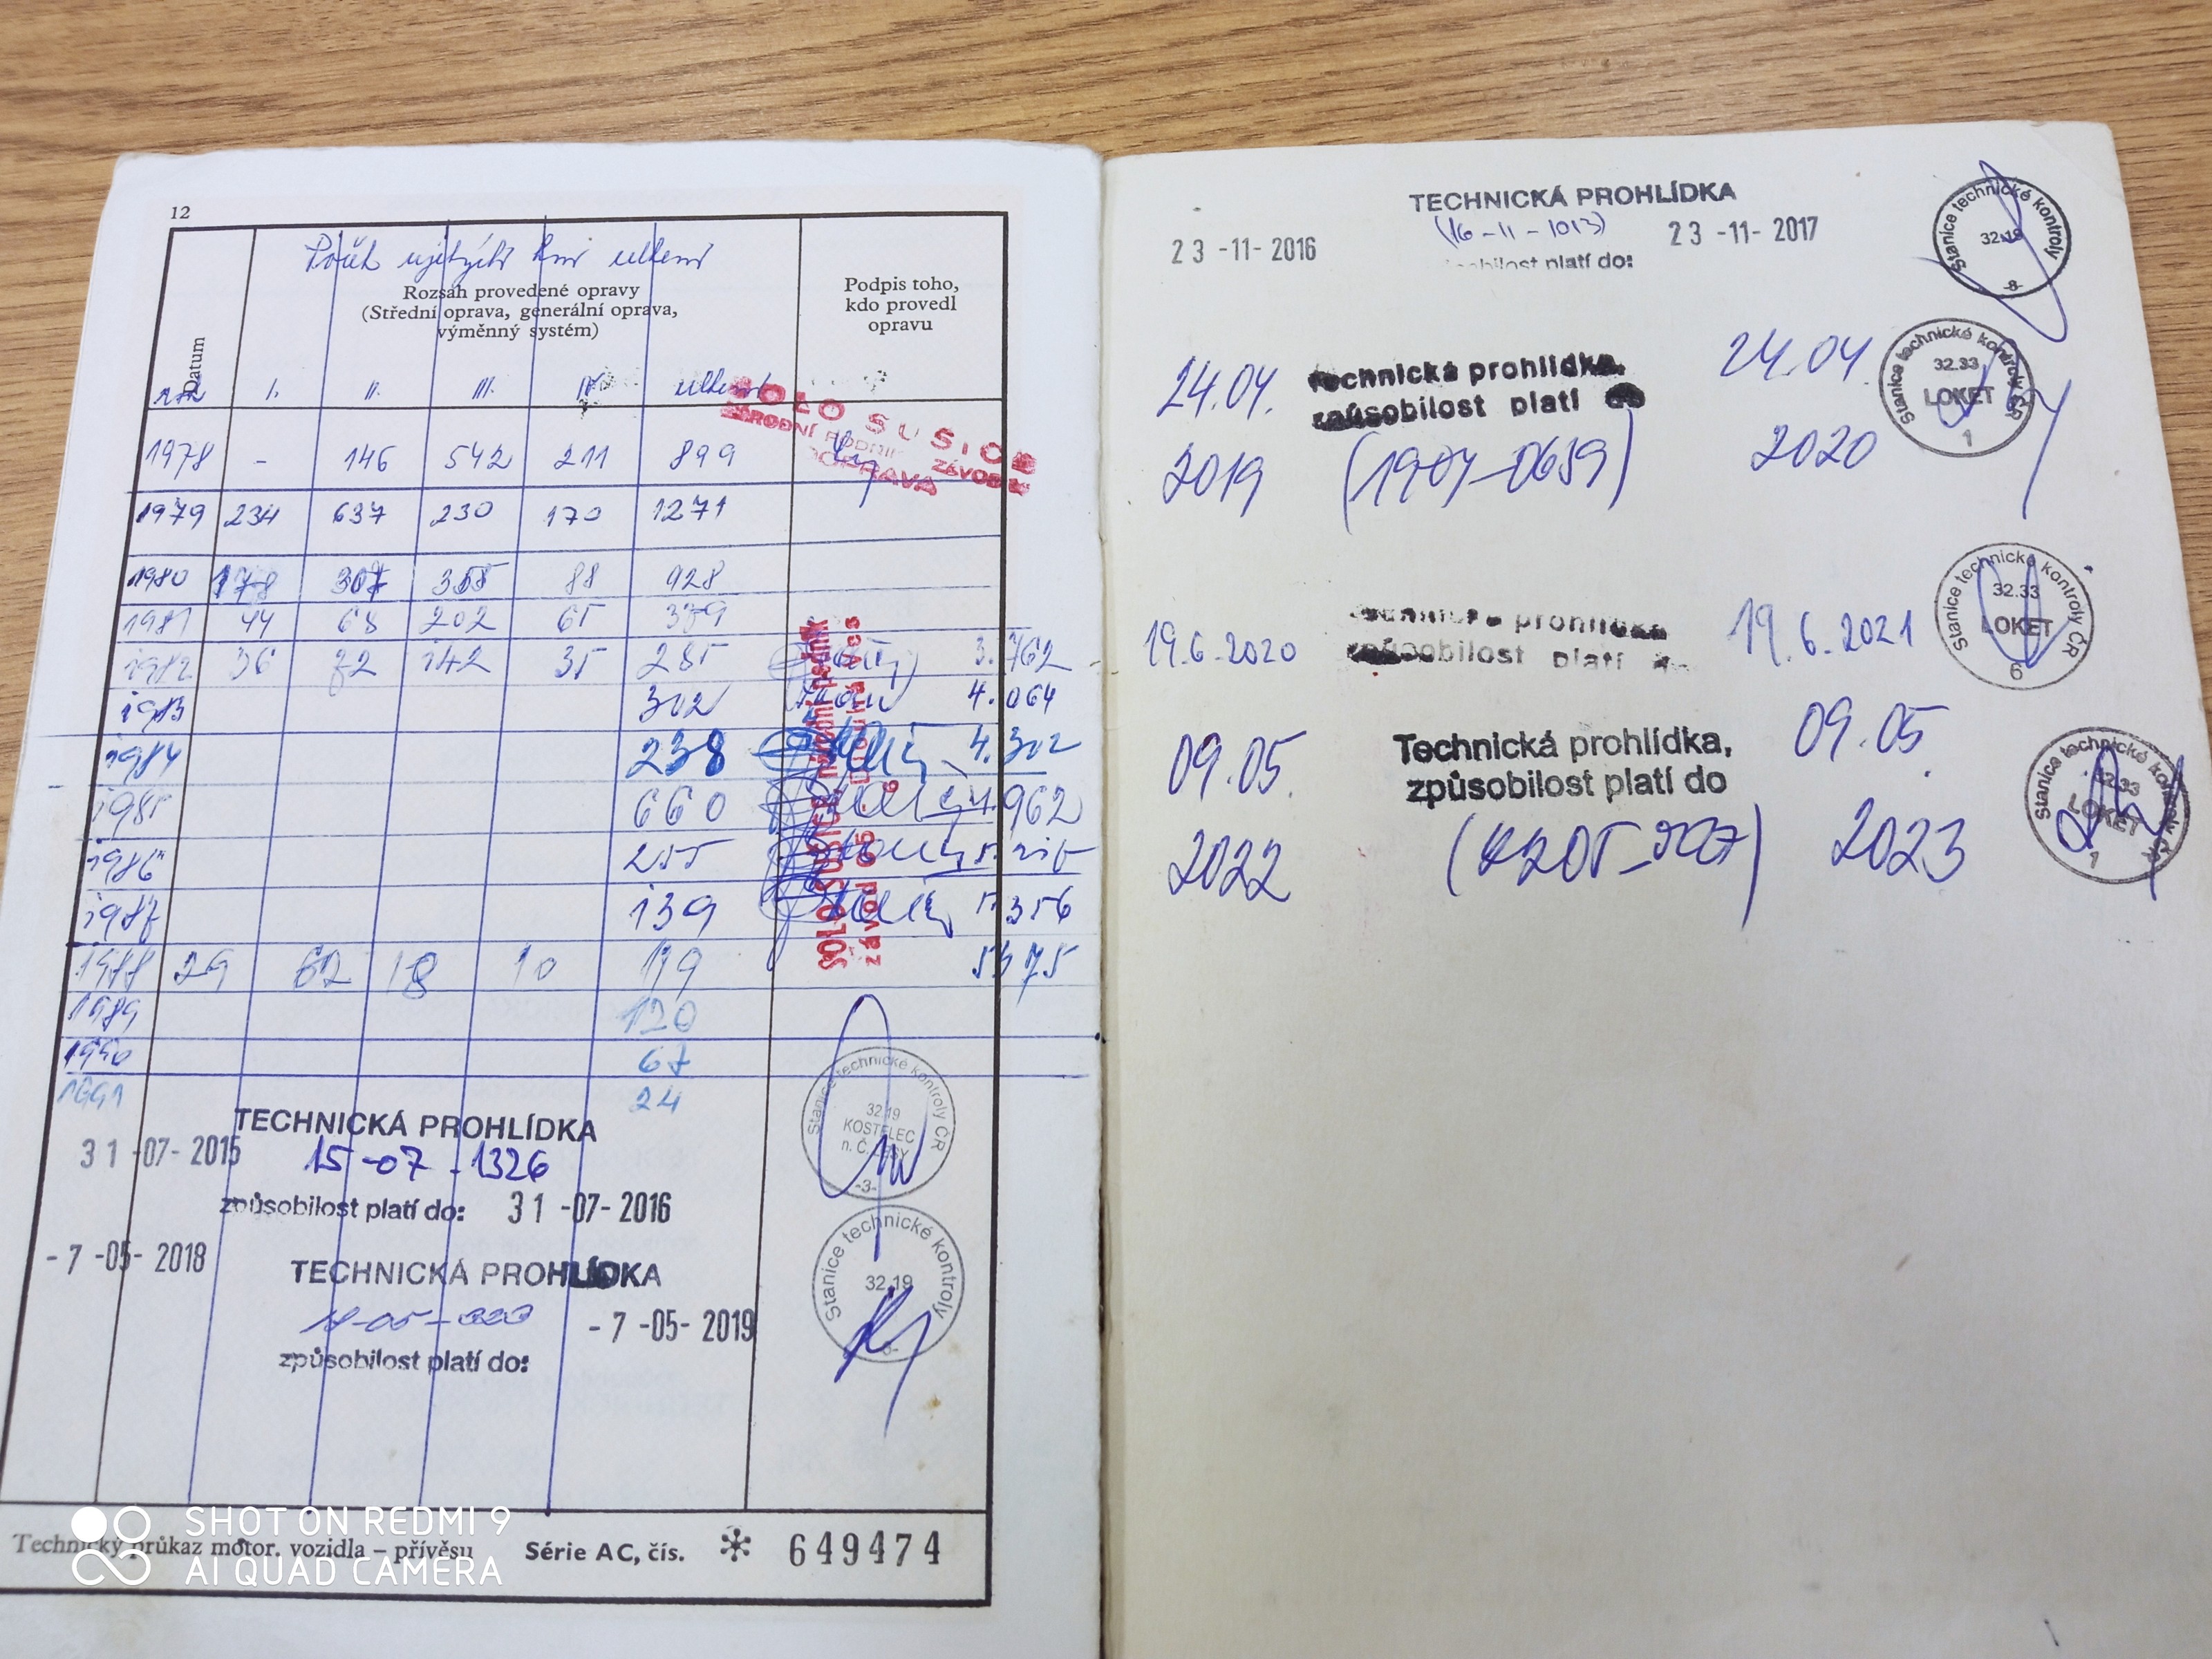 12
Počet ujetých km celkem
Datum
Rozsah provedené opravy
(Střední oprava, generální oprava,
výměnný systém)
Podpis toho,
kdo provedl
opravu
rok I. II. III. IV. celkem
SOLO SUŠICE
NÁRODNÍ PODNIK ZÁVOD
DOPRAVA
1978 - 146 542 211 899
1979 234 637 230 170 1271
1980 178 307 355 88 928
1981 44 68 202 65 379
1982 36 72 142 35 285 3.762
1983 302 4.064
1984 238 4.302
1985 660 4.962
1986 255
1987 139 5.356
1988 29 62 18 10 119 5475
1989 120
1990 67
1991 24
SOLO SUŠICE národní podnik
závod 05
TECHNICKÁ PROHLÍDKA
31-07-2015 15-07-1326
způsobilost platí do: 31-07-2016
Stanice technické kontroly ČR
32.19
KOSTELEC
n. Č. LESY
-3-
-7-05-2018
TECHNICKÁ PROHLÍDKA
-7-05-2019
způsobilost platí do:
Stanice technické kontroly
32.19
Technický průkaz motor. vozidla – přívěsu Série AC, čís. * 649474
SHOT ON REDMI 9
AI QUAD CAMERA
TECHNICKÁ PROHLÍDKA
23-11-2016 (16-11-1013) 23-11-2017
způsobilost platí do:
Stanice technické kontroly
32.19
-8-
24.04. technická prohlídka, 24.04
způsobilost platí do
2019 (1904-0659) 2020
Stanice technické kontroly ČR
32.33
LOKET
1
technická prohlídka
19.6.2020 způsobilost platí 19.6.2021
Stanice technické kontroly ČR
32.33
LOKET
6
09.05. Technická prohlídka, 09.05.
způsobilost platí do
2022 2023
Stanice technické kontroly ČR
32.33
LOKET
1